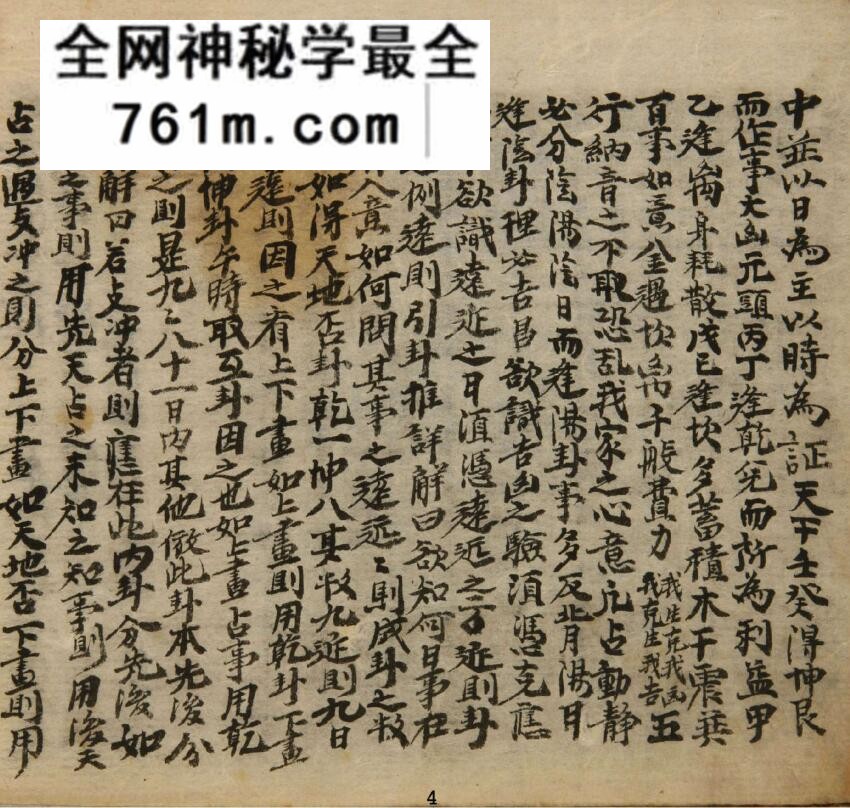 全网神秘学最全
761m.com
中並以日為主以時為証天干壬癸得坤艮
而作事大凶元頭丙丁逢乾兑而所為利益甲
乙逢离身耗散戊已逢坎多蓄積木干震巽
百事如意金遇坎离千般費力我生克我凶我克生我吉五
行納音之不取恐乱我家之心意凡占動静
必分陰陽陰日而逢陽卦事多反此月陽日
逢陰卦理必吉昌欲識吉凶之驗須憑克應
欲識遠近之日須憑遠近之方近則卦
例遠則引卦推詳解曰欲知何日事在
人意如何問其事之遠近〻則成卦之数
如得天地否卦乾一坤八其数九近則九日
遠則因之看上下畫如上畫則用乾卦下畫
坤卦午時取互卦因之也如上畫占事用乾
之則是九〻八十一日内其他倣此卦本先後分
解曰若支冲者則應在此内卦分先後如
之事則用先天占之未知之知事則用後天
占之遇支冲之則分上下畫如天地否下畫則用
4